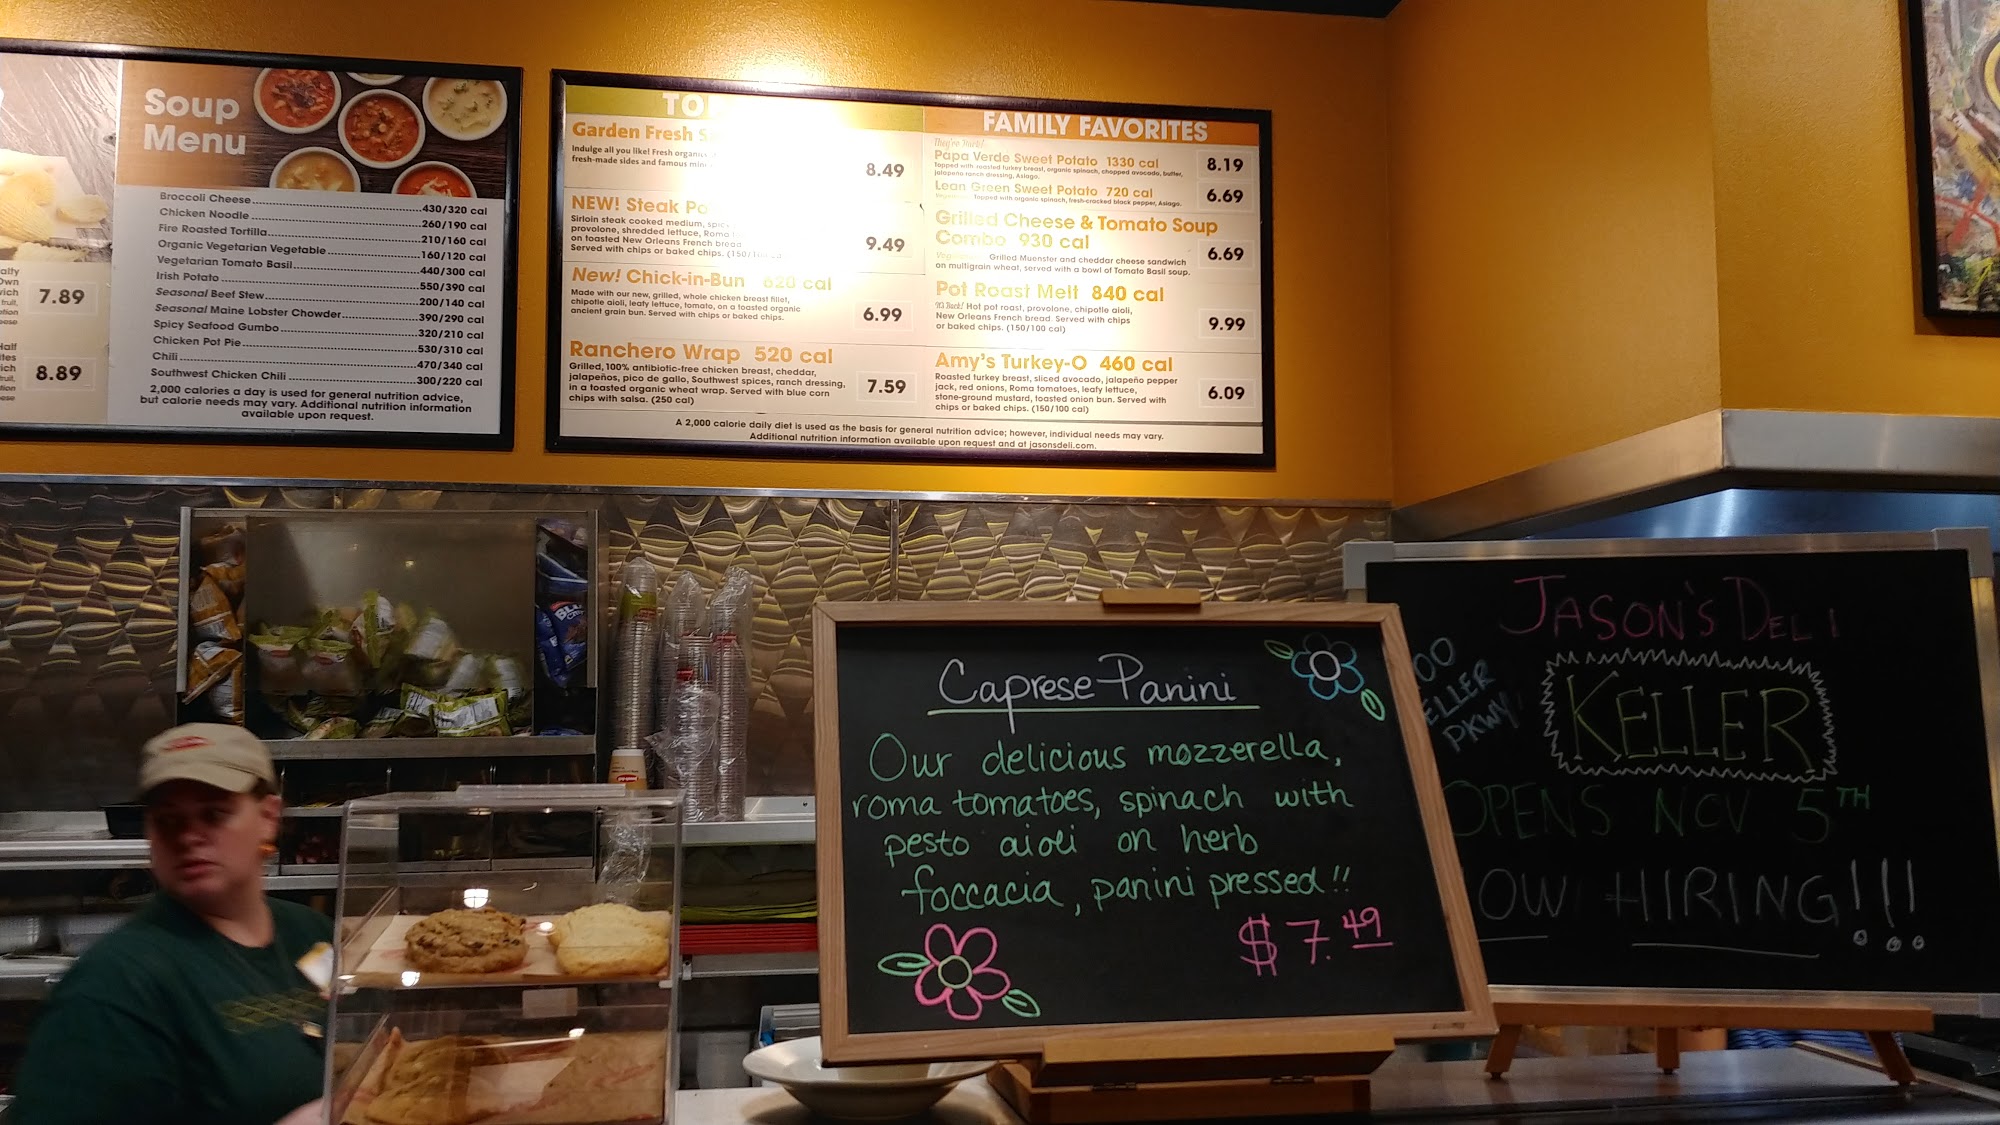 Soup
Menu
Broccoli Cheese 430/320 cal
Chicken Noodle 260/190 cal
Fire Roasted Tortilla 210/160 cal
Organic Vegetarian Vegetable 160/120 cal
Vegetarian Tomato Basil 440/300 cal
Irish Potato 550/390 cal
Seasonal Beef Stew 200/140 cal
Seasonal Maine Lobster Chowder 390/290 cal
Spicy Seafood Gumbo 320/210 cal
Chicken Pot Pie 530/310 cal
Chili 470/340 cal
Southwest Chicken Chili 300/220 cal
2,000 calories a day is used for general nutrition advice,
but calorie needs may vary. Additional nutrition information
available upon request.
7.89
8.89
Garden Fresh
Indulge all you like! Fresh
fresh-made sides and famous
8.49
NEW! Steak
Sirloin steak cooked medium,
provolone, shredded lettuce, Roma
on toasted New Orleans French bread
Served with chips or baked chips.
9.49
New! Chick-in-Bun 620 cal
Made with our new, grilled, whole chicken breast fillet,
chipotle aioli, leafy lettuce, tomato, on a toasted organic
ancient grain bun. Served with chips or baked chips.
6.99
Ranchero Wrap 520 cal
Grilled, 100% antibiotic-free chicken breast, cheddar,
jalapeños, pico de gallo, Southwest spices, ranch dressing,
in a toasted organic wheat wrap. Served with blue corn
chips with salsa. (250 cal)
7.59
FAMILY FAVORITES
They're Back!
Papa Verde Sweet Potato 1330 cal
Topped with roasted turkey breast, organic spinach, chopped avocado, butter,
jalapeño ranch dressing, Asiago.
8.19
Lean Green Sweet Potato 720 cal
Topped with organic spinach, fresh-cracked black pepper, Asiago.
6.69
Grilled Cheese & Tomato Soup
Combo 930 cal
Grilled Muenster and cheddar cheese sandwich
on multigrain wheat, served with a bowl of Tomato Basil soup.
6.69
Pot Roast Melt 840 cal
It's Back! Hot pot roast, provolone, chipotle aioli,
New Orleans French bread. Served with chips
or baked chips. (150/100 cal)
9.99
Amy's Turkey-O 460 cal
Roasted turkey breast, sliced avocado, jalapeño pepper
jack, red onions, Roma tomatoes, leafy lettuce,
stone-ground mustard, toasted onion bun. Served with
chips or baked chips. (150/100 cal)
6.09
A 2,000 calorie daily diet is used as the basis for general nutrition advice; however, individual needs may vary.
Additional nutrition information available upon request and at jasonsdeli.com.
Caprese Panini
Our delicious mozzerella,
roma tomatoes, spinach with
pesto aioli on herb
foccacia, panini pressed!!
$7.49
JASON'S DELI
KELLER
PKWY
OPENS NOV 5TH
OW HIRING!!!